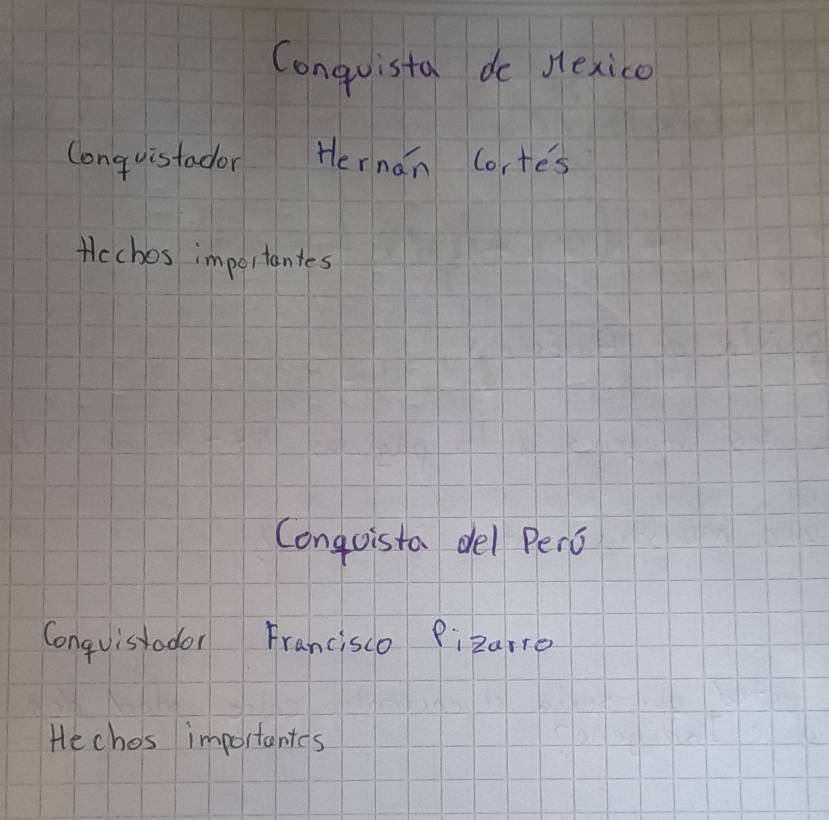 Conquista de Mexico
Conquistador Hernán Cortés
Hechos importantes
Conquista del Perú
Conquistador Francisco Pizarro
Hechos importantes